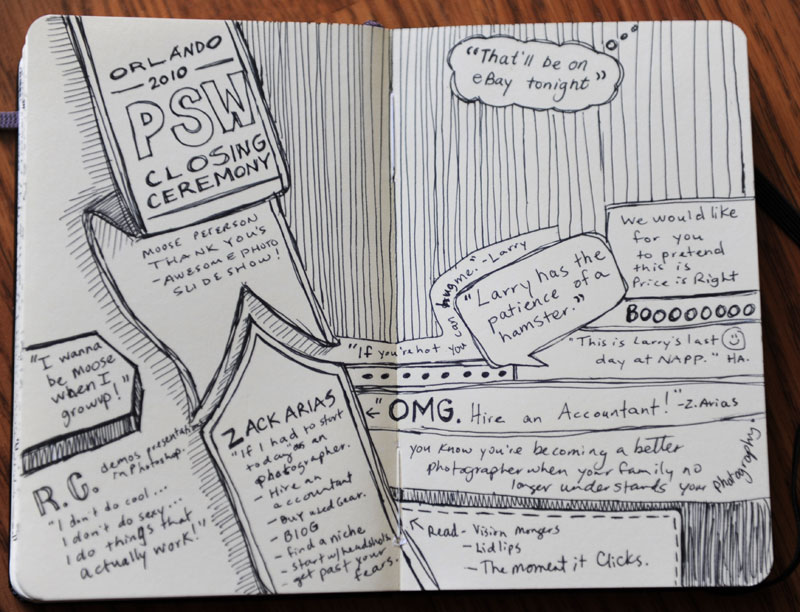 ORLANDO
- 2010 -
PSW
CLOSING
CEREMONY
MOOSE PETERSON
THANK YOU'S
-AWESOME PHOTO
SLIDESHOW!
"I wanna
be Moose
when I
growup!"
R.C. demos presentation
in Photoshop.
"I don't do cool...
I don't do sexy...
I do things that
actually work!"
ZACK ARIAS
"If I had to start
today" as an
photographer.
- Hire an
accountant
- Buy used Gear.
- BLOG
- find a niche
- start w/headshots
- get past your
fears.
"That'll be on
eBay tonight"
"If you're hot you can hug me." -Larry
"Larry has the
patience of a
hamster."
We would like
for you
to pretend
this is
Price is Right
BOOOOOOOO
"This is Larry's last
day at NAPP." HA.
"OMG. Hire an Accountant!" -Z.Arias
you know you're becoming a better
photographer when your family no
longer understands your photography.
Read - Visirn mongers
- Lidlips
- The moment it Clicks.